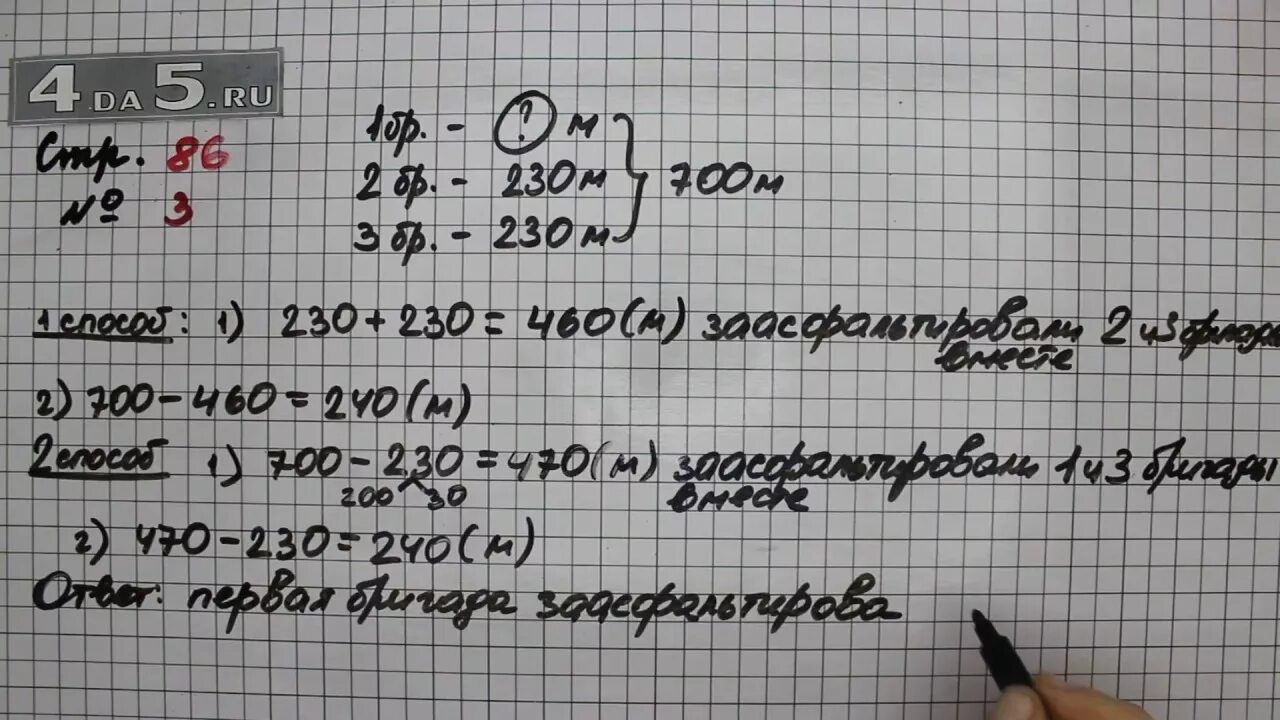 4DA5.RU
Стр. 86
№ 3
1 бр. - ? м
2 бр. - 230 м
3 бр. - 230 м
700 м
1 способ: 1) 230 + 230 = 460 (м) заасфальтировали 2 и 3 бригады
вместе
2) 700 - 460 = 240 (м)
2 способ 1) 700 - 230 = 470 (м) заасфальтировали 1 и 3 бригады
200 30 вместе
2) 470 - 230 = 240 (м)
Ответ: первая бригада заасфальтирова